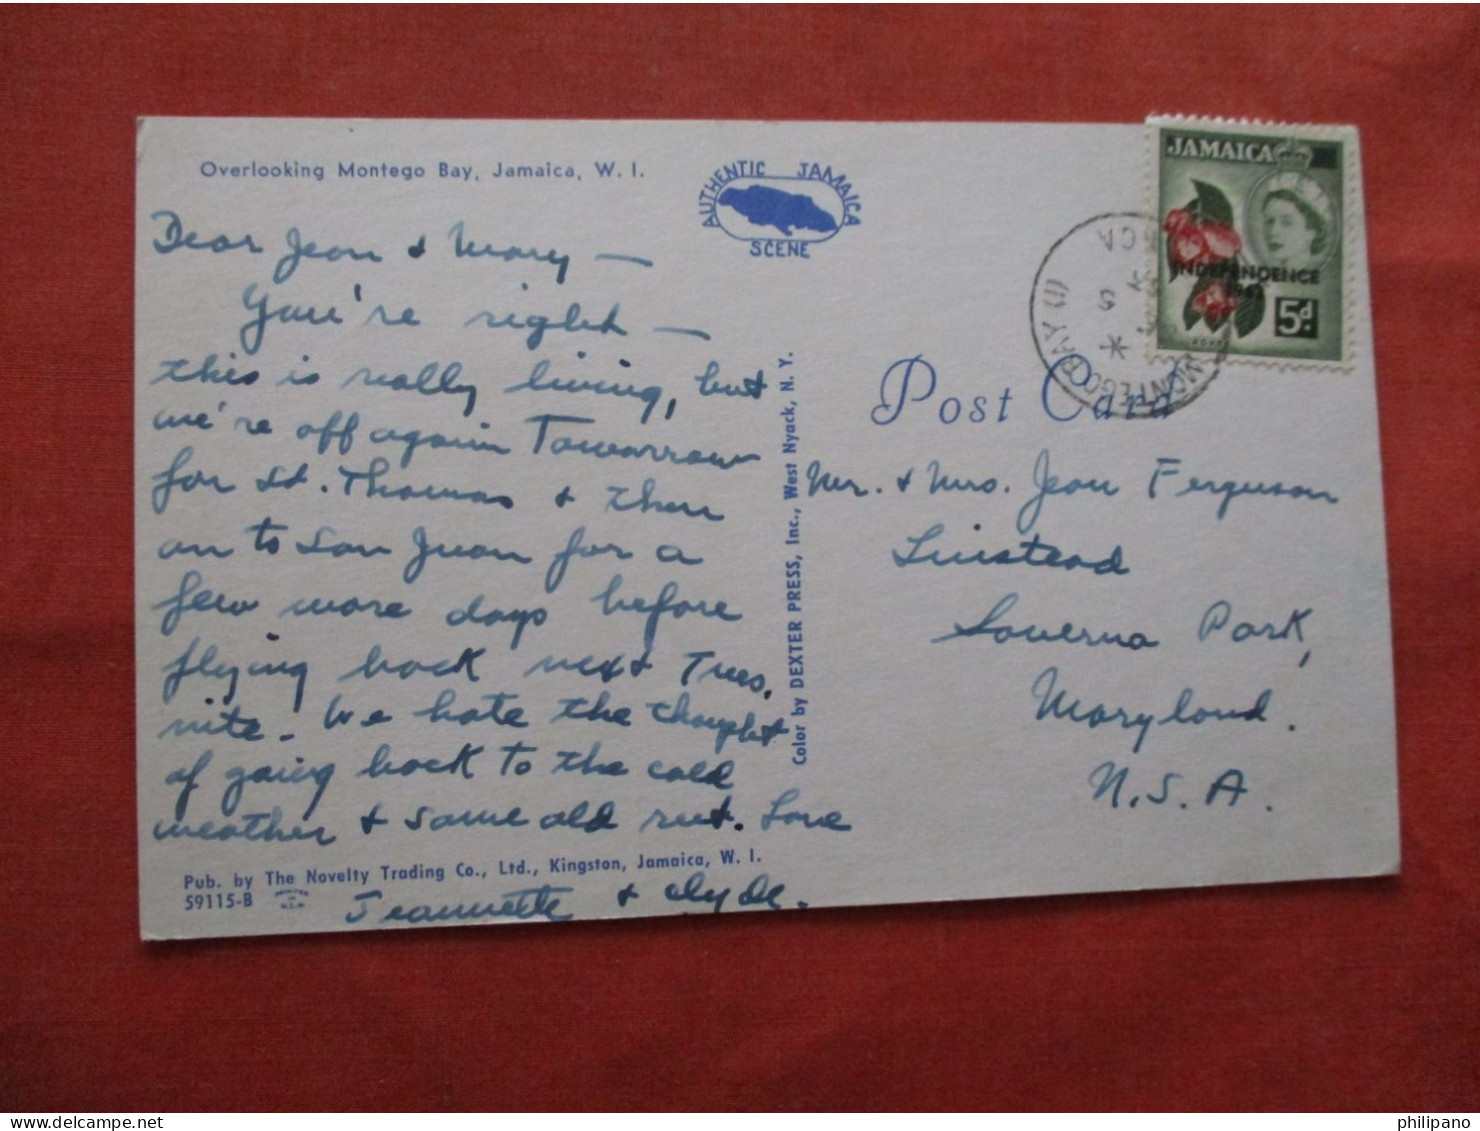 Overlooking Montego Bay, Jamaica, W. I.
AUTHENTIC JAMAICA
SCENE
JAMAICA
INDEPENDENCE
1962
5d.
MONTEGO BAY (1)
JCA
Post Card
Dear Jean & Mary —
You're right —
this is really living, but
we're off again Tomorrow
for St. Thomas & then
on to San Juan for a
few more days before
flying back next Tues.
nite. We hate the thought
of going back to the cold
weather & same old rut. Love
Jeannette & Clyde.
Mr. & Mrs. Jean Ferguson
Linstead
Saverna Park,
Maryland.
U.S.A.
Color by DEXTER PRESS, Inc., West Nyack, N. Y.
Pub. by The Novelty Trading Co., Ltd., Kingston, Jamaica, W. I.
59115-B
philipano